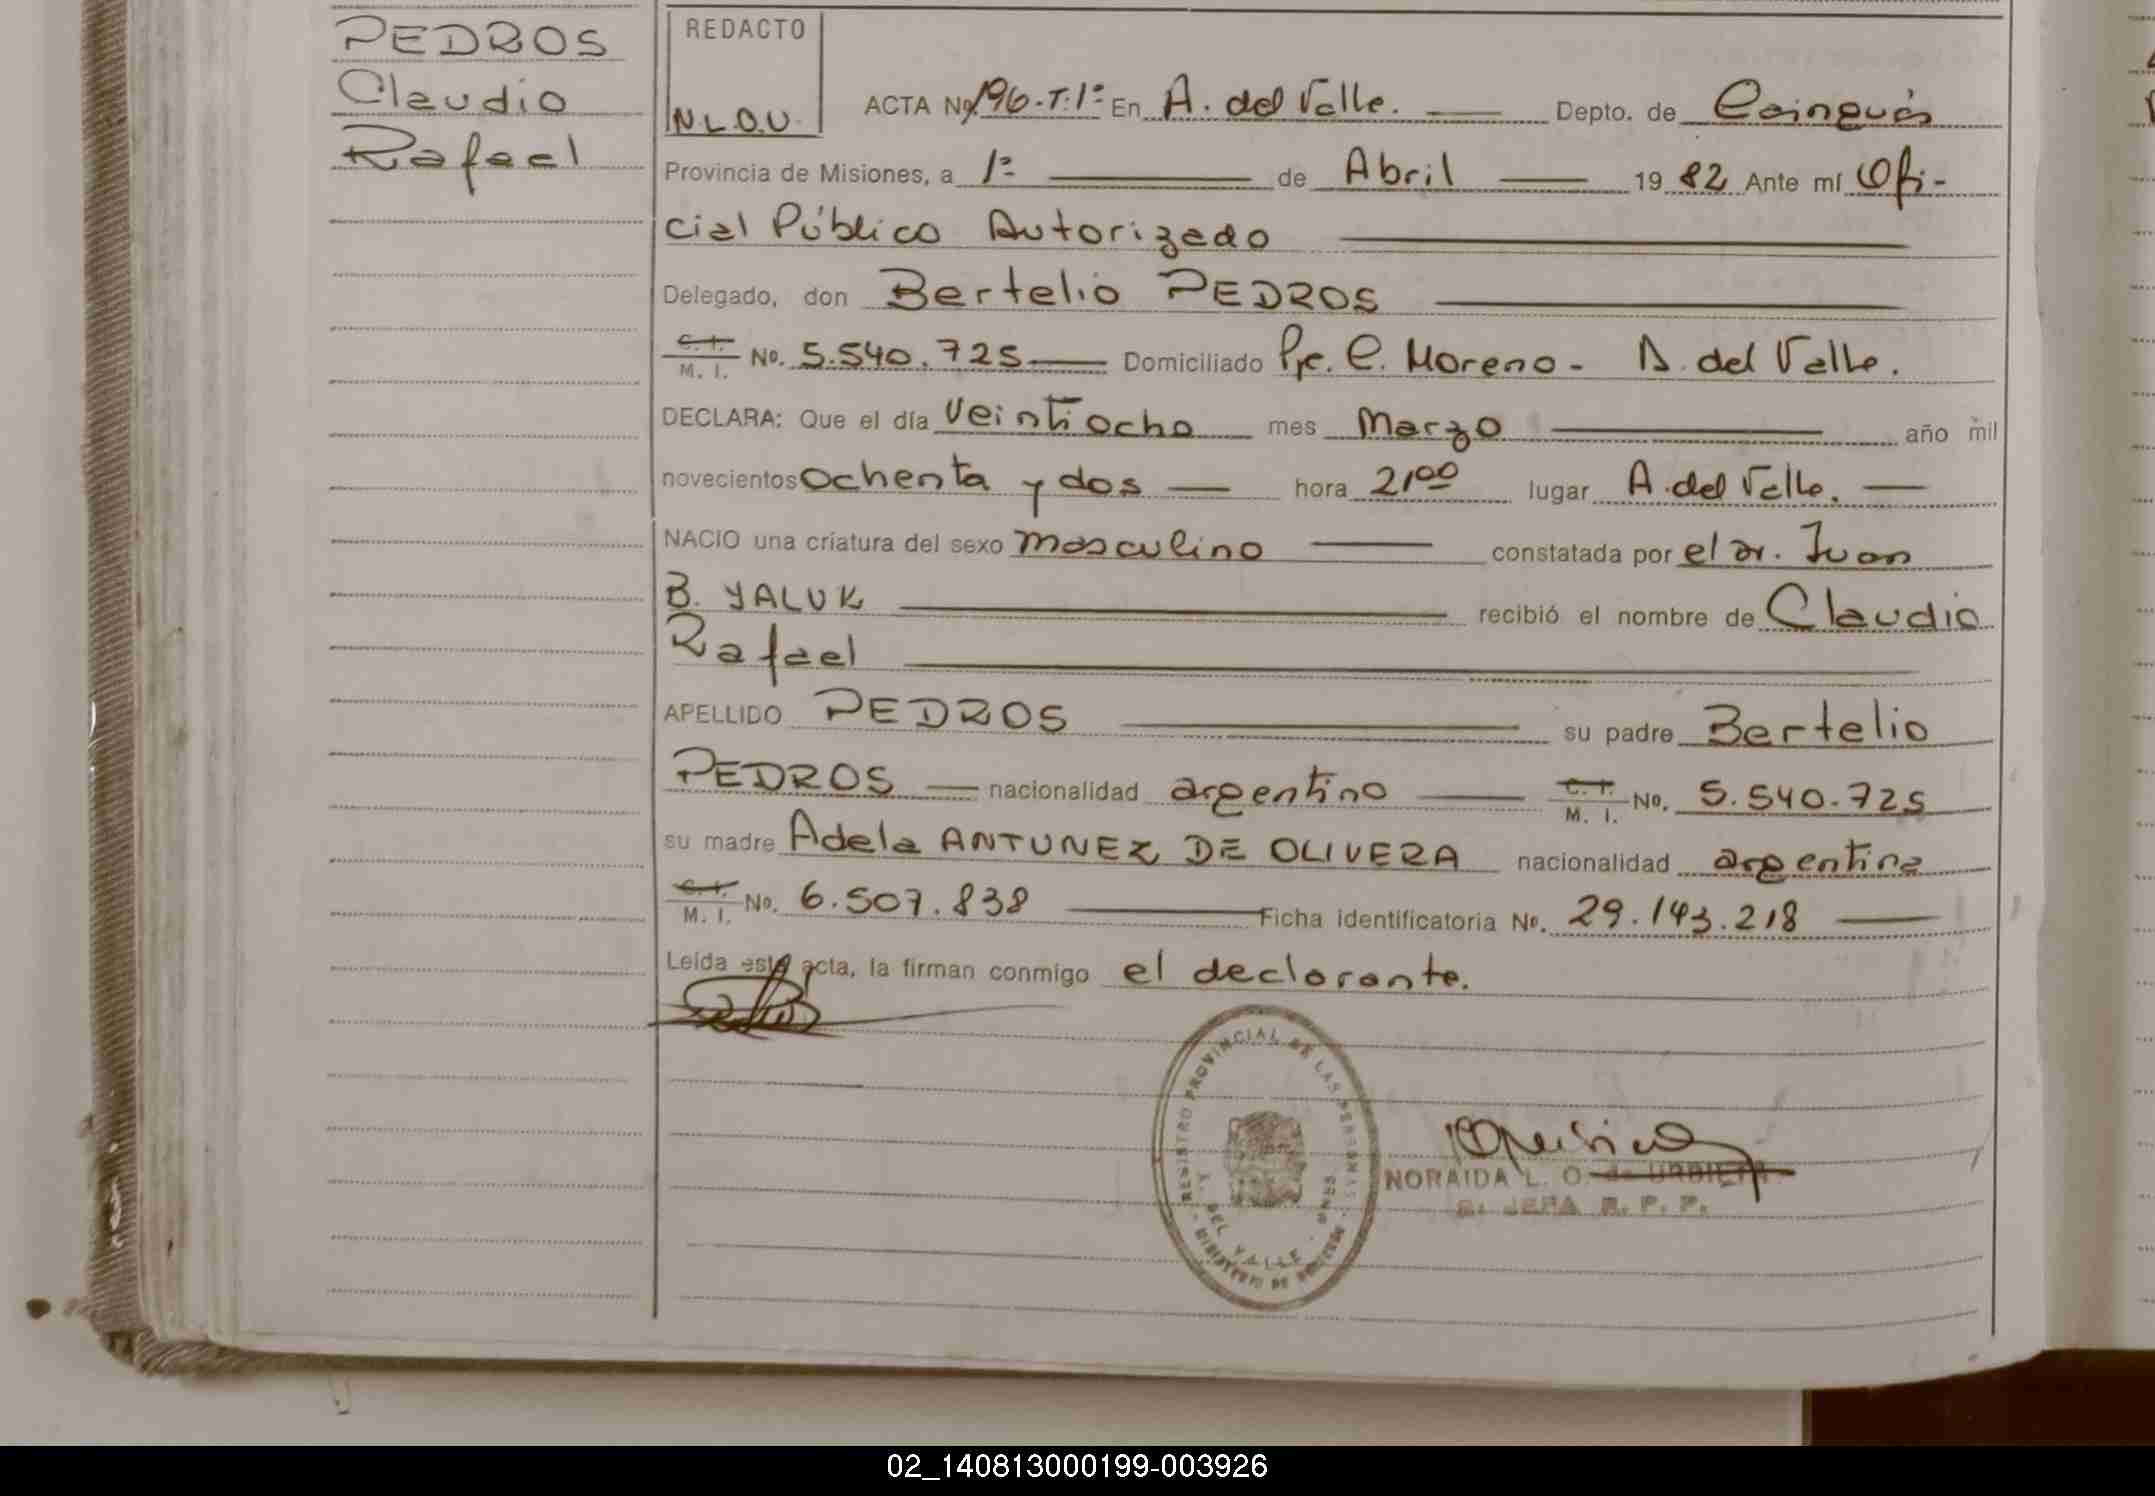 PEDROS
Claudio
Rafael
REDACTO
N.L.O.U.
ACTA Nº 196.T.1º En A. del Valle. Depto. de Cainguás
Provincia de Misiones, a 1º de Abril 19 82 Ante mí Ofi-
cial Público Autorizado
Delegado, don Bertelio PEDROS
C. I. M. I. Nº. 5.540.725 Domiciliado Pje. C. Moreno - A. del Valle.
DECLARA: Que el día veintiocho mes Marzo año mil
novecientos ochenta y dos hora 21⁰⁰ lugar A. del Valle.
NACIO una criatura del sexo masculino constatada por el Dr. Juan
B. YALUK recibió el nombre de Claudio
Rafael
APELLIDO PEDROS su padre Bertelio
PEDROS nacionalidad argentino C. I. M. I. Nº. 5.540.725
su madre Adela ANTUNEZ DE OLIVERA nacionalidad argentina
C. I. M. I. Nº. 6.507.838 Ficha identificatoria Nº. 29.143.218
Leída esta acta, la firman conmigo el declarante.
REGISTRO PROVINCIAL DE LAS PERSONAS
DEL VALLE - MNES
MINISTERIO DE
NORAIDA L. O. de URBIETA
JEFA R. P. P.
02_140813000199-003926